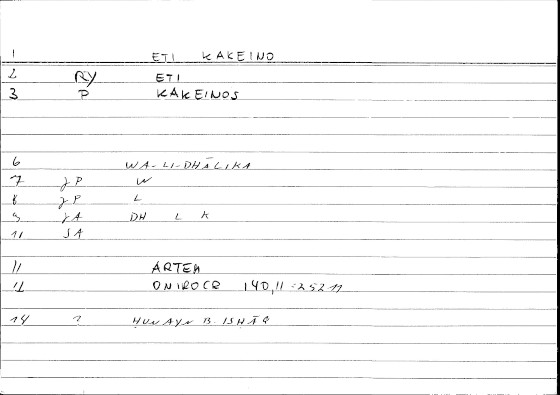 1 ETI KAKEINO
2 RY ETI
3 P KAKEINOS
6 WA-LI-DHĀLIKA
7 JP W
8 JP L
9 JA DH L K
11 SA
11 ARTEM
12 ONIROCR 140,11 = 252 11
14 ? HUNAYN B. ISHĀQ